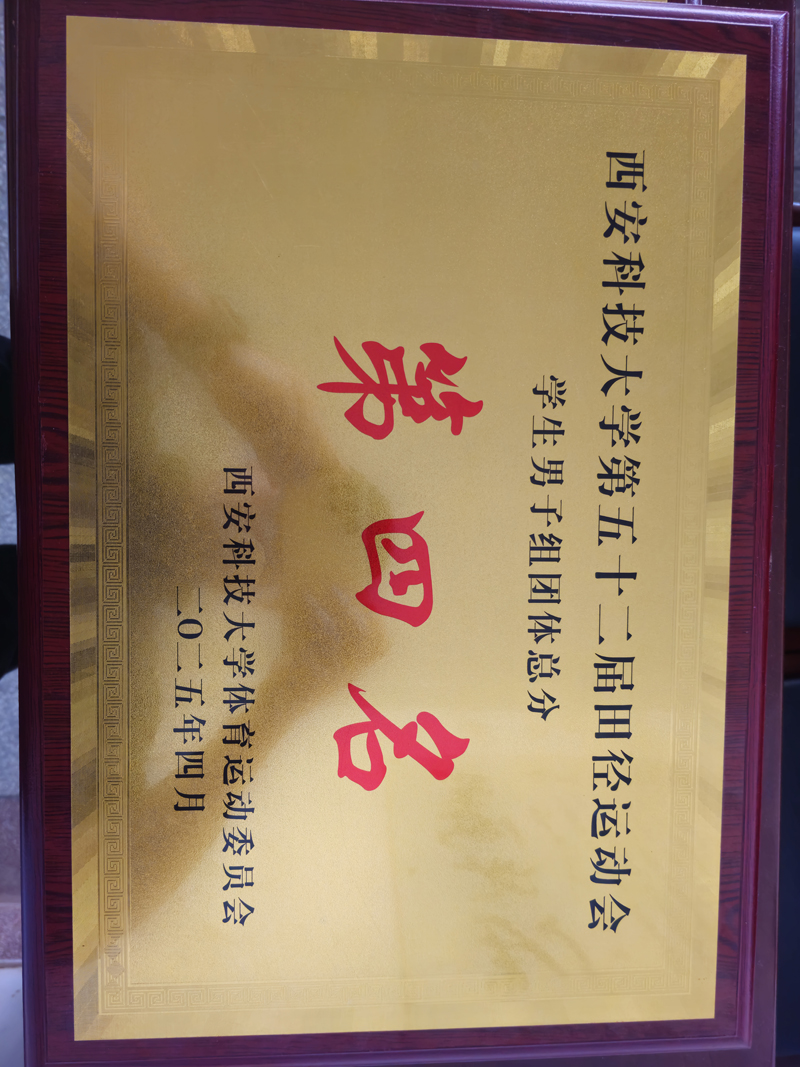 西安科技大学第五十二届田径运动会
学生男子组团体总分
第四名
西安科技大学体育运动委员会
二〇二五年四月